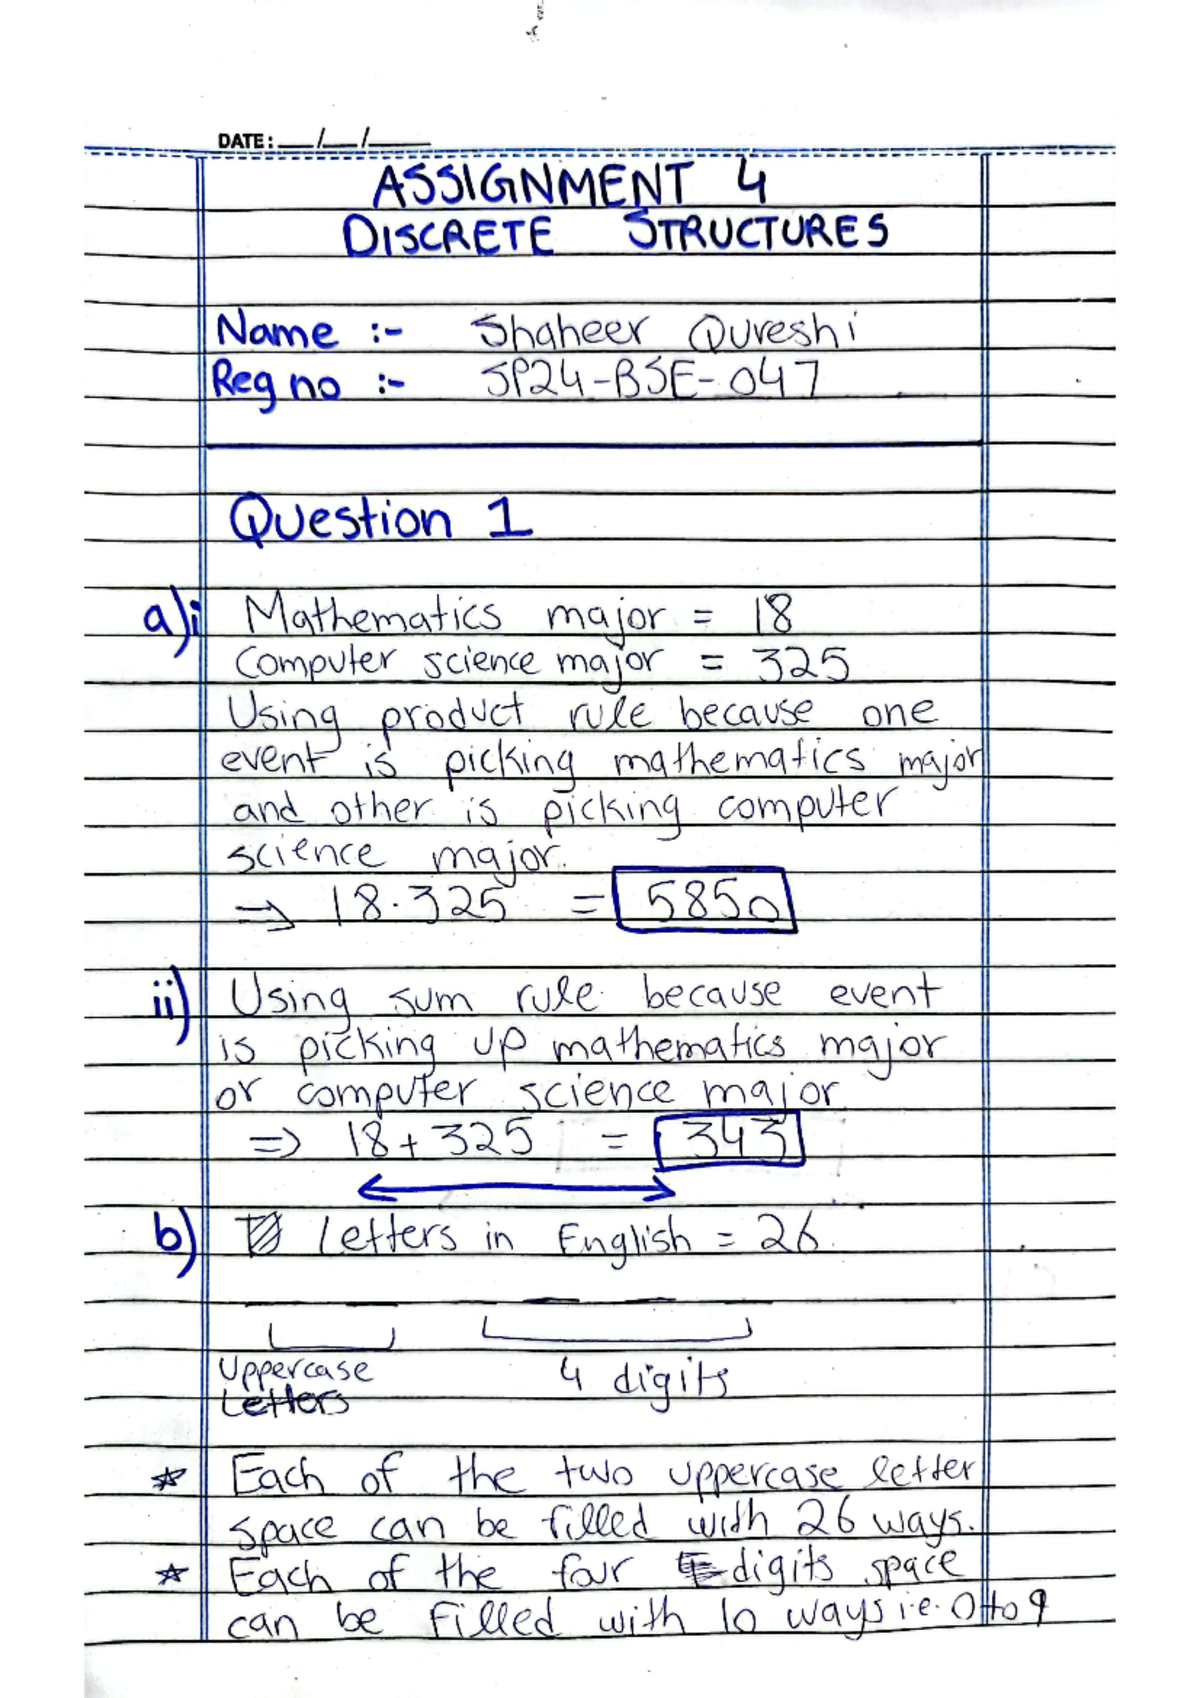 DATE: __/__/____
ASSIGNMENT 4
DISCRETE STRUCTURES
Name :- Shaheer Qureshi
Reg no :- SP24-BSE-047
Question 1
a)i Mathematics major = 18
Computer science major = 325
Using product rule because one
event is picking mathematics major
and other is picking computer
science major.
⇒ 18.325 = 5850
ii) Using sum rule because event
is picking up mathematics major
or computer science major
⇒ 18+325 = 343
b) Letters in English = 26.
Uppercase 4 digits
Letters
☆ Each of the two uppercase letter
space can be filled with 26 ways.
☆ Each of the four digits space
can be filled with 10 ways i.e. 0 to 9